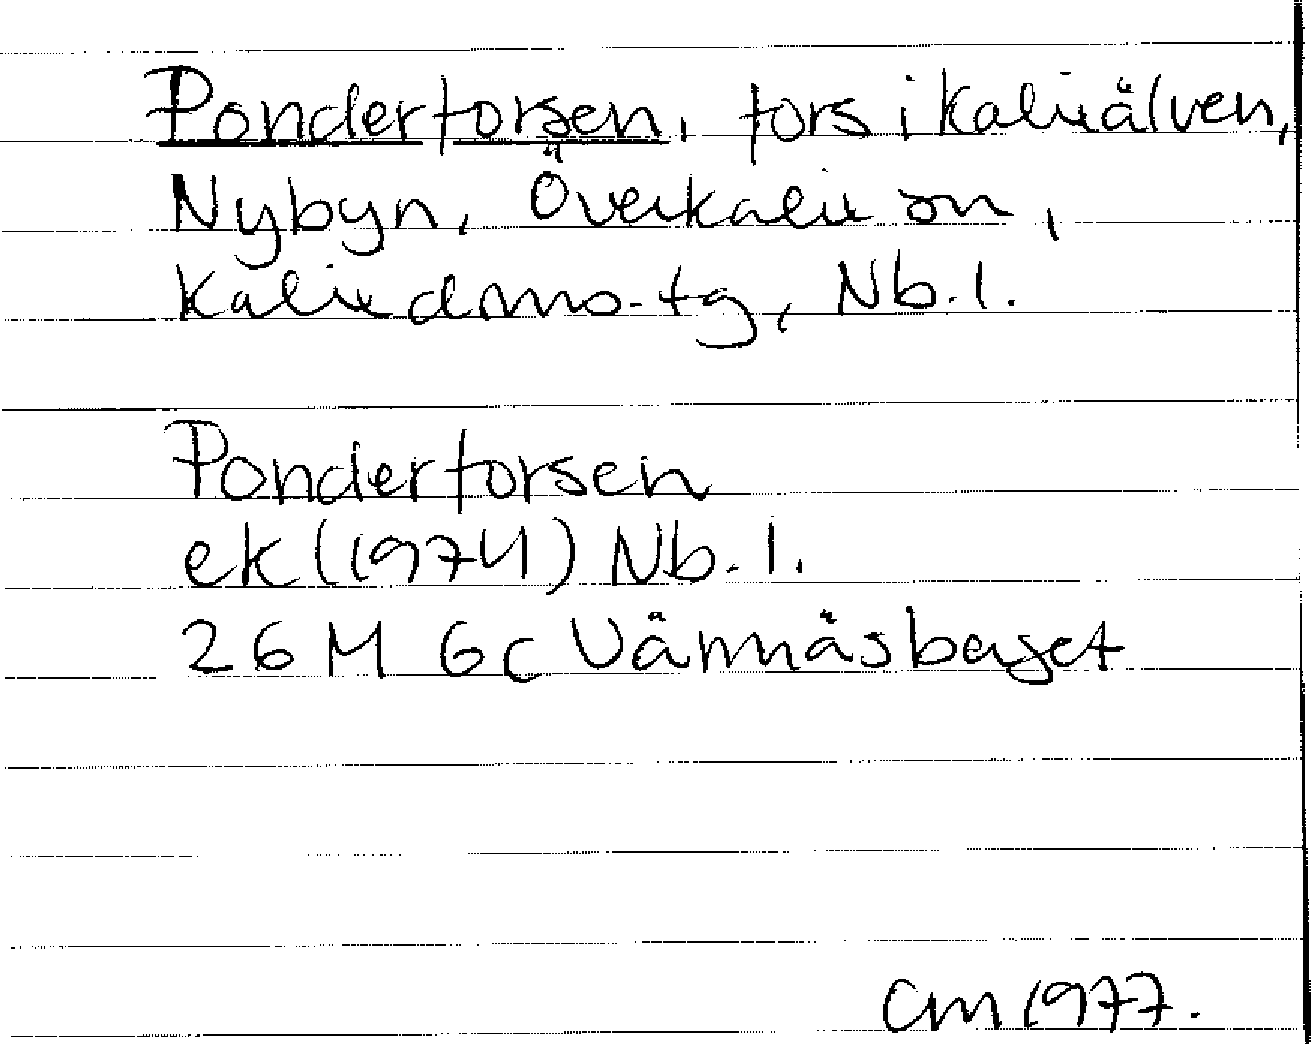 Ponderforsen, fors i Kalixälven,
Nybyn, Överkalix sn,
Kalix domso-tg, Nb. l.
Ponderforsen
ek (1974) Nb. l.
26 M 6c Vännäsberget
CM 1977.